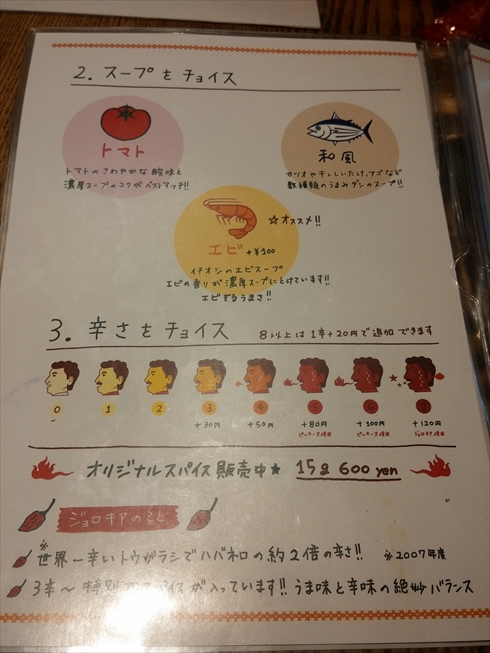 2. スープをチョイス
トマト
トマトのさわやかな酸味と
濃厚スープのコクがベストマッチ!!
和風
カツオや干ししいたけ、アゴなど
数種類のうまみダシのスープ!!
☆オススメ!!
エビ +¥100
イチオシのエビスープ
エビの香りが濃厚スープにとけています!!
エビずるうまさ!!
3. 辛さをチョイス 8以上は1辛+20円で追加できます
0 1 2 3 4 5 6 7
+30円 +50円 +80円 +100円 +120円
オリジナルスパイス販売中★ 15g 600 yen
ジョロキアのこと
※世界一辛いトウガラシでハバネロの約2倍の辛さ!! ※2007年度
3辛〜特別なスパイスが入っています!! うま味と辛味の絶妙バランス